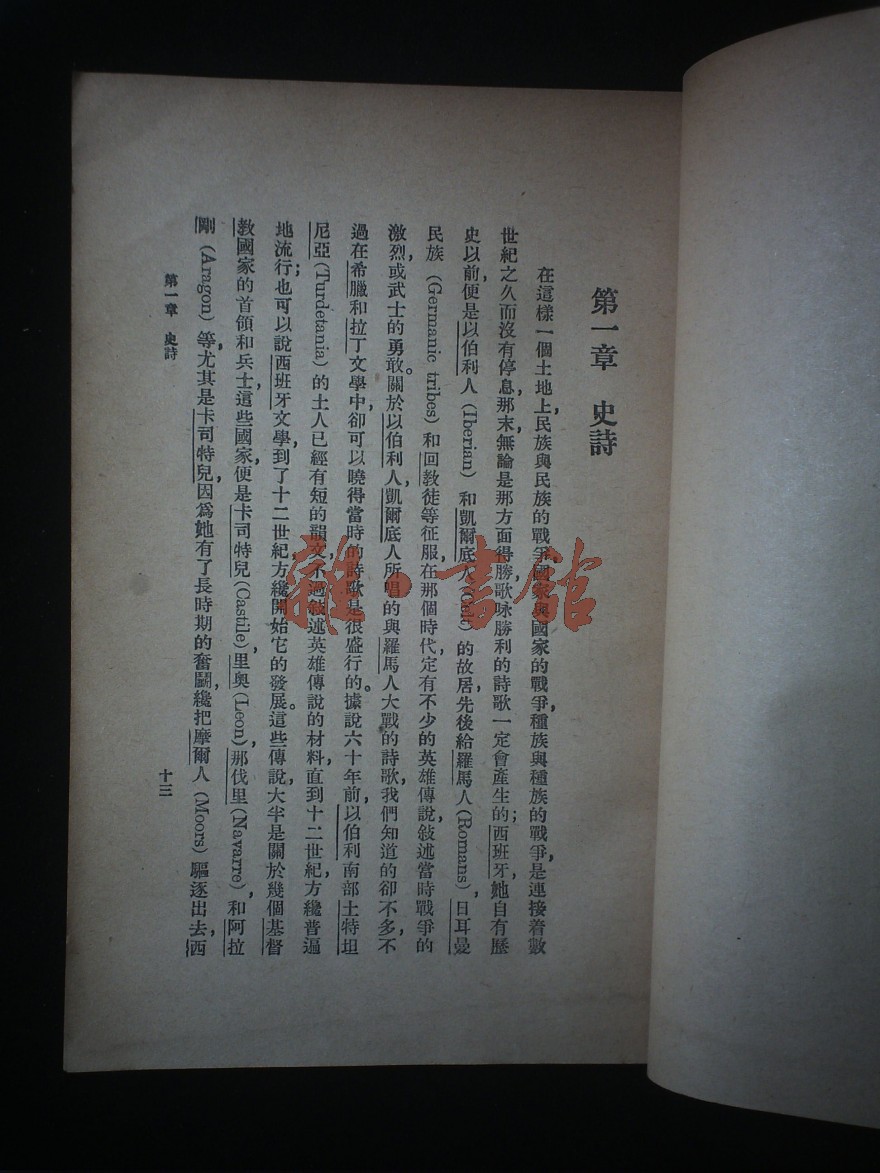 第一章　史詩
在這樣一個土地上，民族與民族的戰爭，國家與國家的戰爭，種族與種族的戰爭，是連接着數
世紀之久而沒有停息，那末，無論是那方面得勝，歌咏勝利的詩歌一定會產生的；西班牙，她自有歷
史以前，便是以伯利人（Iberian）和凱爾底人（Celt）的故居，先後給羅馬人（Romans），日耳曼
民族（Germanic tribes）和回教徒等征服，在那個時代，定有不少的英雄傳說，敍述當時戰爭的
激烈，或武士的勇敢。關於以伯利人，凱爾底人所唱的與羅馬人大戰的詩歌，我們知道的卻不多，不
過在希臘和拉丁文學中，卻可以曉得當時的詩歌是很盛行的。據說六十年前，以伯利南部土特坦
尼亞（Turdetania）的土人已經有短的韻文，不過敍述英雄傳說的材料，直到十二世紀方纔普遍
地流行；也可以說西班牙文學，到了十二世紀方纔開始它的發展。這些傳說，大半是關於幾個基督
教國家的首領和兵士，這些國家，便是卡司特兒（Castile），里奧（Leon），那伐里（Navarre），和阿拉
剛（Aragon）等，尤其是卡司特兒，因爲她有了長時期的奮鬭，纔把摩爾人（Moors）驅逐出去，西
第一章　史詩
十三
雜·書館